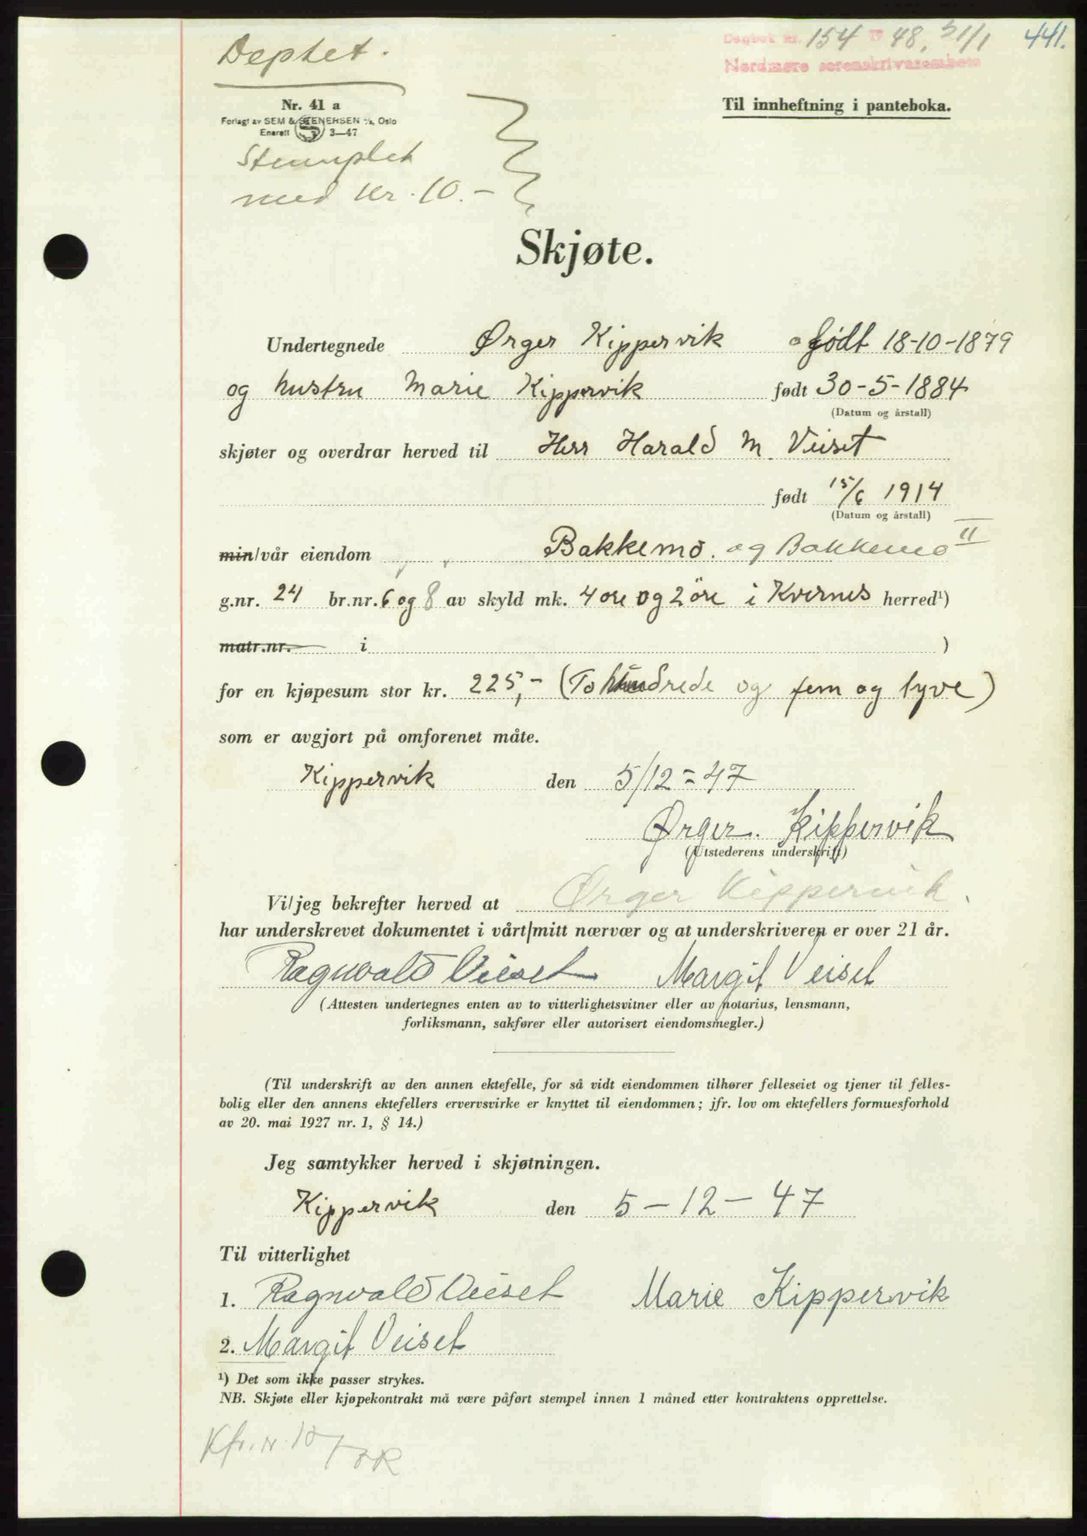 Deptet.
Dagbok nr. 154 19 48, 31/1 441.
Nordmøre sorenskriverembete
Nr. 41 a
Forlagt av SEM & STENERSEN A/S, Oslo
Enerett 3—47
Til innheftning i panteboka.
Stemplet
med kr. 10.-
Skjøte.
Undertegnede Ørger Kippervik født 18-10-1879
og hustru Marie Kippervik født 30-5-1884
(Datum og årstall)
skjøter og overdrar herved til Herr Harald M. Veiset
født 15/6 1914
(Datum og årstall)
min/vår eiendom Bakkemo. og Bakkemo II
g.nr. 24 br.nr. 6 og 8 av skyld mk. 4 øre og 2 öre i Kvernes herred¹)
matr.nr. i )
for en kjøpesum stor kr. 225,- (To hundrede og fem og tyve)
som er avgjort på omforenet måte.
Kippervik den 5/12 = 47
Ørger. Kippervik
(Utstederens underskrift)
Vi/jeg bekrefter herved at Ørger Kippervik.
har underskrevet dokumentet i vårt/mitt nærvær og at underskriveren er over 21 år.
Ragnvald Veiset Margit Veiset
(Attesten undertegnes enten av to vitterlighetsvitner eller av notarius, lensmann,
forliksmann, sakfører eller autorisert eiendomsmegler.)
(Til underskrift av den annen ektefelle, for så vidt eiendommen tilhører felleseiet og tjener til felles-
bolig eller den annens ektefellers ervervsvirke er knyttet til eiendommen; jfr. lov om ektefellers formuesforhold
av 20. mai 1927 nr. 1, § 14.)
Jeg samtykker herved i skjøtningen.
Kippervik den 5 — 12 — 47
Til vitterlighet
1. Ragnvald Veiset Marie Kippervik
2. Margit Veiset
¹) Det som ikke passer strykes.
NB. Skjøte eller kjøpekontrakt må være påført stempel innen 1 måned etter kontraktens opprettelse.